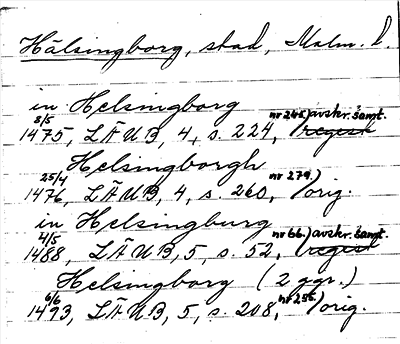 Hälsingborg, stad, Malm. l.
in Helsingborg
8/5 1475, LÄUB, 4, s. 224, nr 245.) avskr. samt. regist
Helsingborgh
25/4 1476, LÄUB, 4, s. 260, nr 279.) orig.
in Helsingburg
4/5 1488, LÄUB, 5, s. 52, nr 66.) avskr. samt. regist
Helsingborg (2 ggr.)
6/6 1493, LÄUB, 5, s. 208, nr 255.) orig.